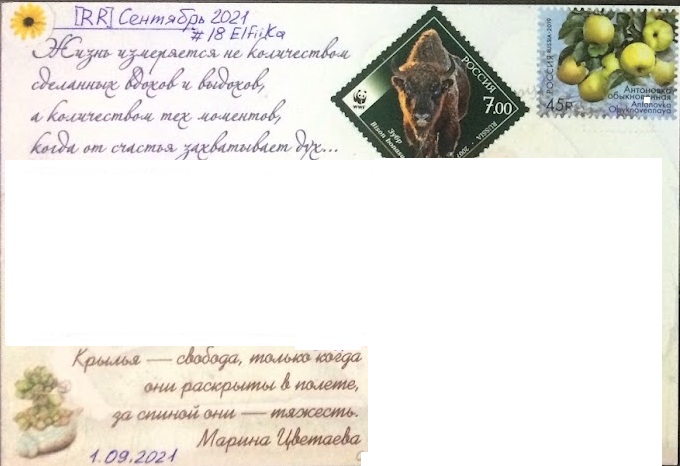 [RR] Сентябрь 2021
#18 Elfiika
Жизнь измеряется не количеством
сделанных вдохов и выдохов,
а количеством тех моментов,
когда от счастья захватывает дух...
РОССИЯ
7.00
WWF
Зубр
Bison
RUSSIA
РОССИЯ RUSSIA 2019
45₽
Антоновка
обыкновенная
Antonovka
Obyknovennaya
Крылья — свобода, только когда
они раскрыты в полете,
за спиной они — тяжесть.
Марина Цветаева
1.09.2021